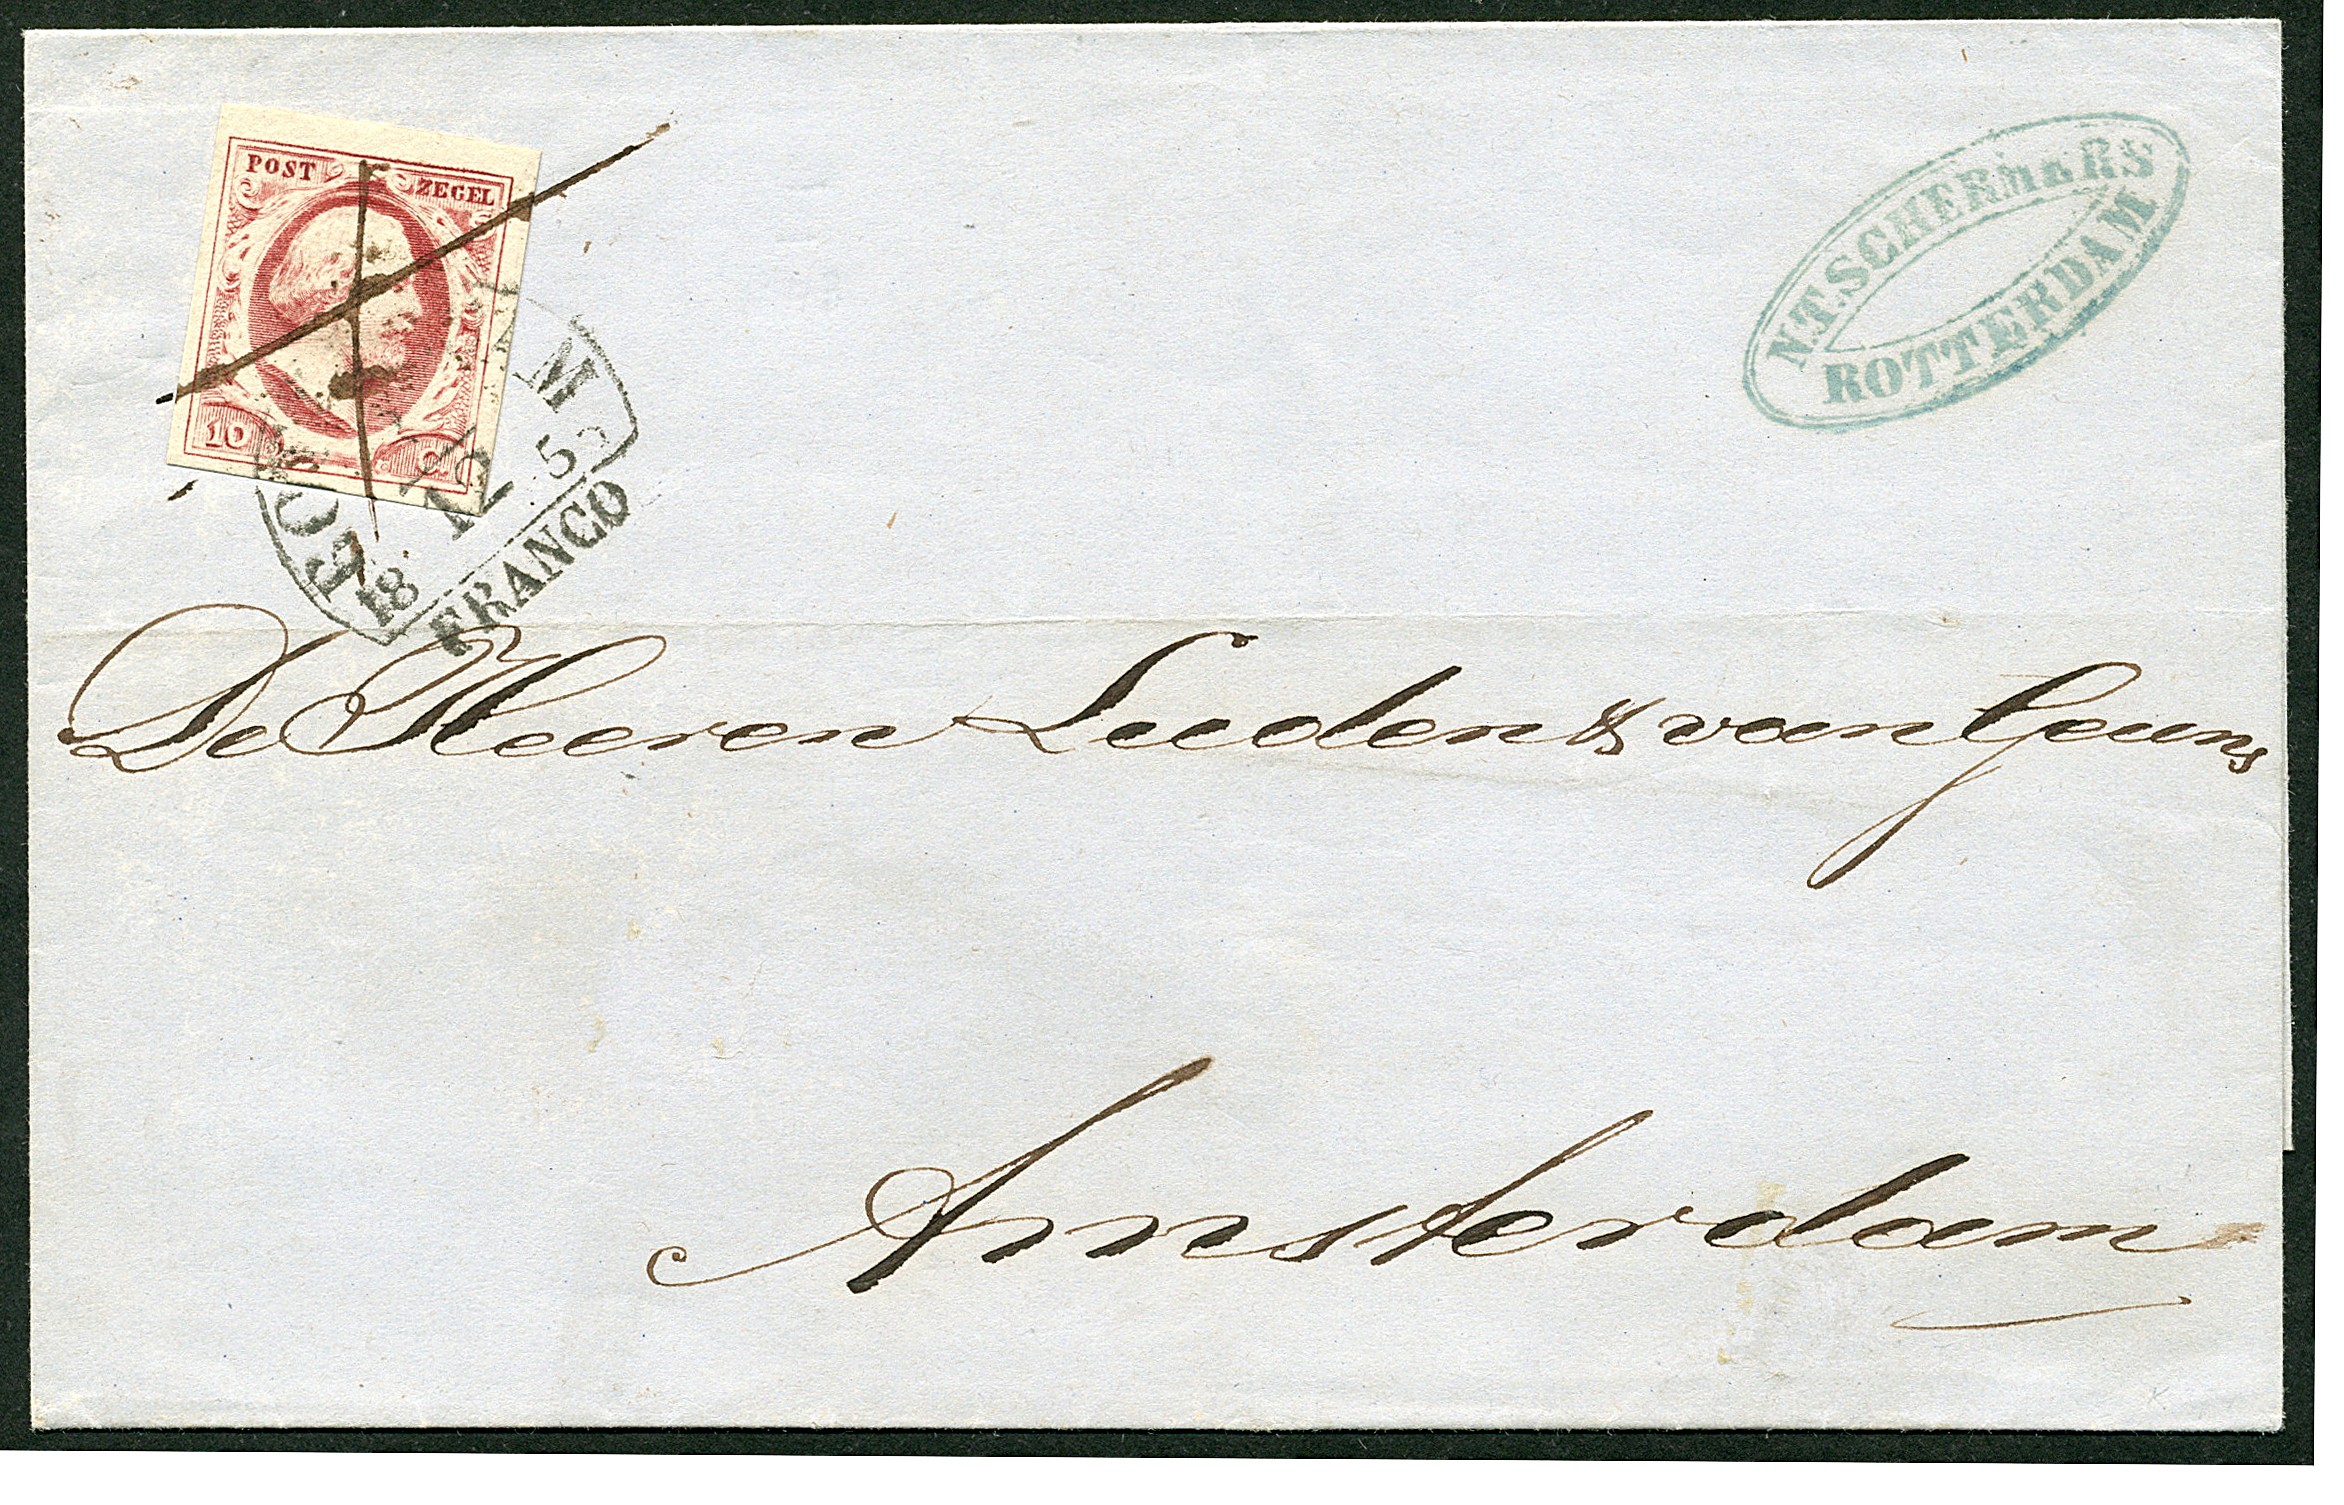 POST ZEGEL
10 C.
18 12 5
FRANCO
N.T. SCHERMERS
ROTTERDAM
De Heeren Luden & van Geuns
Amsterdam